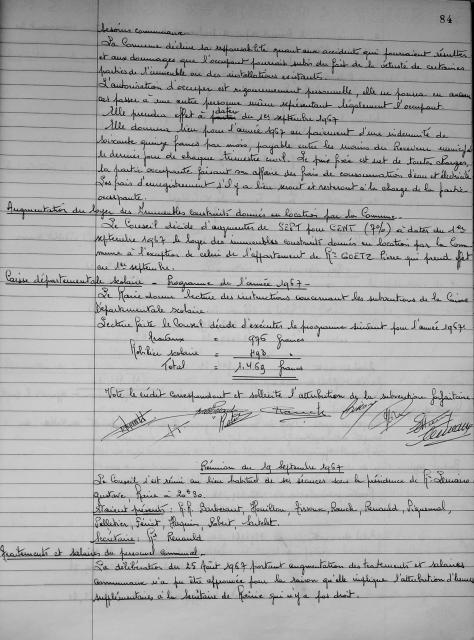 84
besoins communaux.
La Commune décline sa responsabilité quant aux accidents qui pourraient résulter
et aux dommages que l'occupant pourrait subir du fait de la vétusté de certaines
parties de l'immeuble ou des installations existantes.
L'autorisation d'occuper est rigoureusement personnelle, elle ne pourra en aucun
cas passer à une autre personne même représentant légalement l'occupant
Elle prendra effet à dater du 1er septembre 1967
Elle donnera lieu pour l'année 1967 au paiement d'une indemnité de
soixante quinze francs par mois, payable entre les mains du Receveur municipal
le dernier jour de chaque trimestre civil. Le prix fixé est net de toutes charges,
la partie occupante faisant son affaire des frais de consommation d'eau et électricité
Les frais d'enregistrement s'il y a lieu seront et resteront à la charge de la partie
occupante.
Augmentation du loyer des Immeubles construits donnés en location par la Commune.
Le Conseil décide d'augmenter de SEPT pour CENT (7%) à dater du 1er
septembre 1967 le loyer des immeubles construits donnés en location par la Com
mune à l'exception de celui de l'appartement de Mr GOETZ Pierre qui prend effet
au 1er septembre.
Caisse départementale scolaire - Programme de l'année 1967 -
Le Maire donne lecture des instructions concernant les subventions de la Caisse
Départementale scolaire
Lecture faite le Conseil décide d'exécuter le programme suivant pour l'année 1967:
Travaux = 976 francs
Mobilier scolaire = 493 "
Total = 1.469 francs
Vote le crédit correspondant et sollicite l'attribution de la subvention forfaitaire
Réunion du 19 Septembre 1967
Le Conseil s'est réuni au lieu habituel de ses séances sous la présidence de Mr
Gustave, Maire à 20h30.
Etaient présents: M.M. Houillon, Renauld,
Pelletier, Robert,
Secrétaire: Mr Renauld
Traitements et salaires du personnel communal.
La délibération du 25 Août 1967 portant augmentation des traitements et salaires
communaux n'a pu être approuvée pour la raison qu'elle implique l'attribution d'heures
supplémentaires à la Secrétaire de Mairie qui n'y a pas droit.